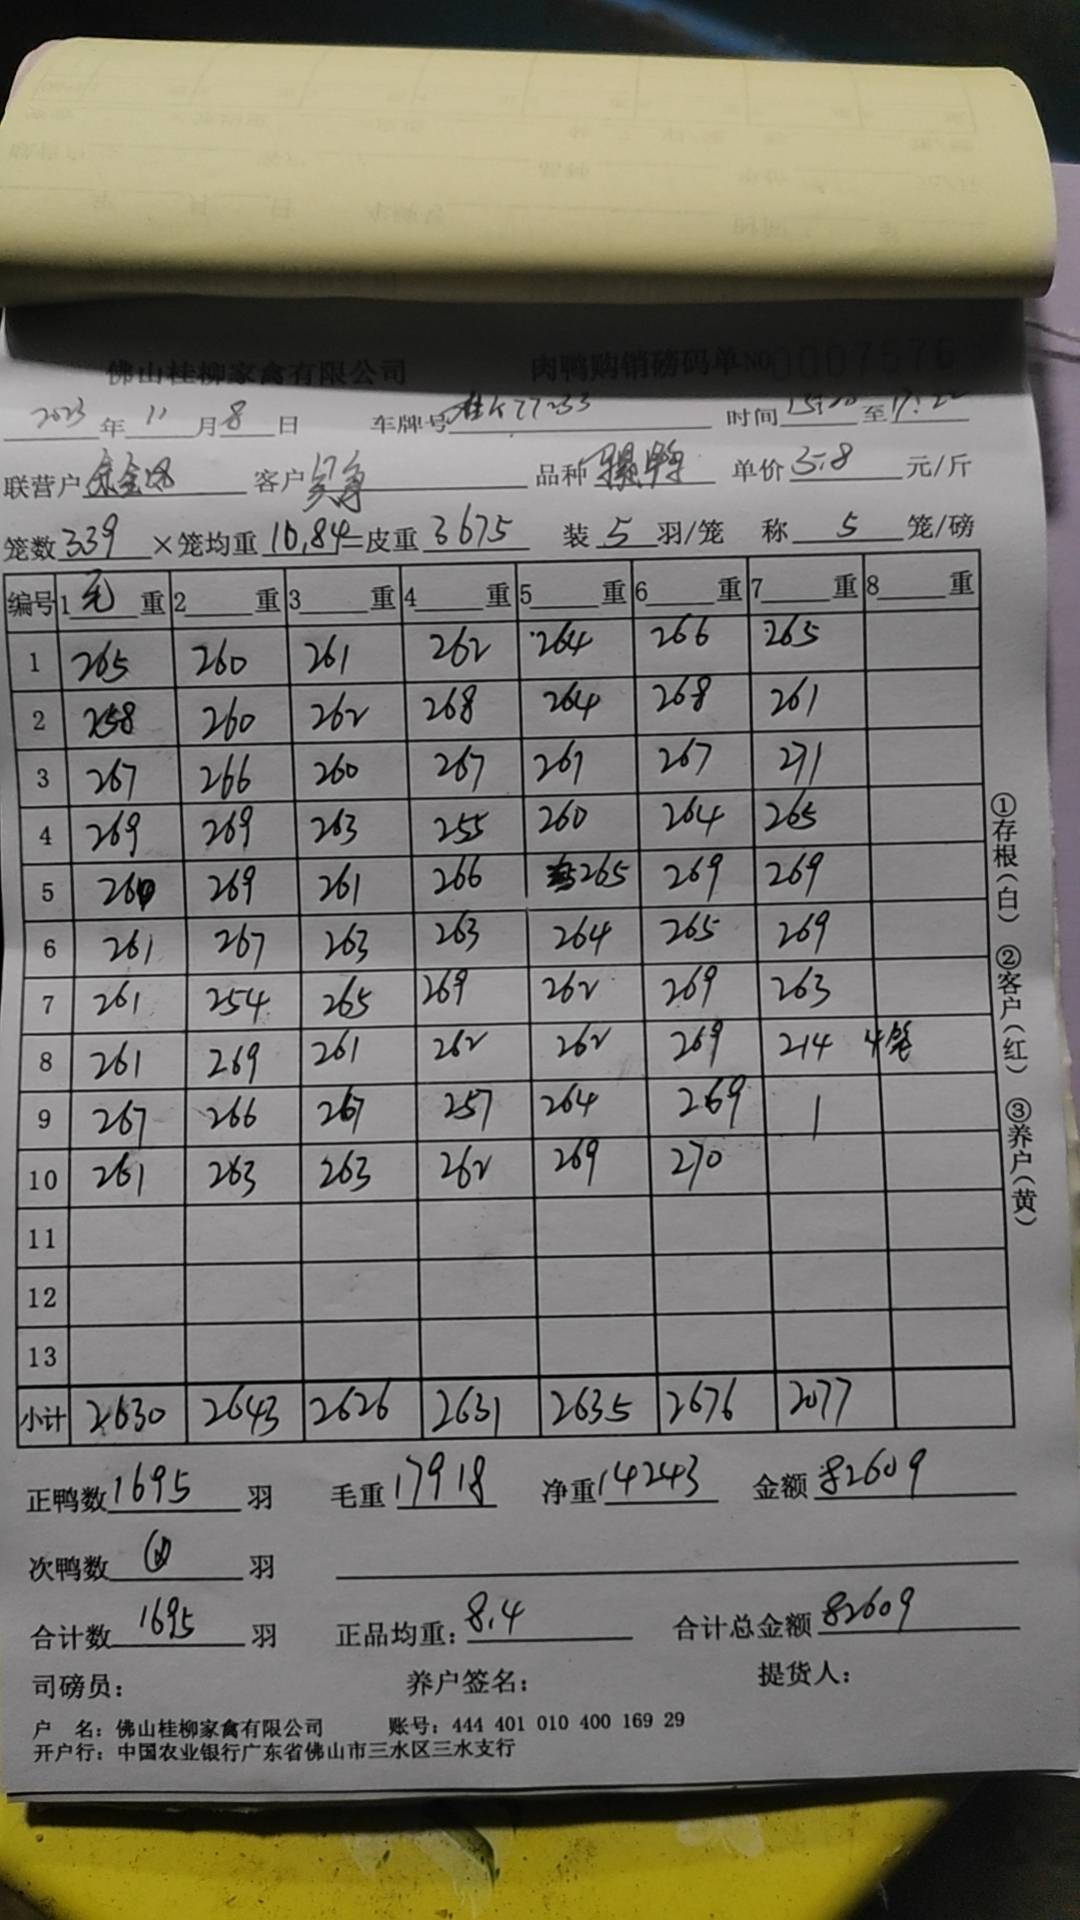 佛山桂柳家禽有限公司 肉鸭购销磅码单 NO 0007576
2023年11月8日 车牌号 时间 至17:22
联营户 客户 品种 单价5.8元/斤
笼数339×笼均重10.84=皮重3675 装5羽/笼 称5笼/磅
编号 1毛重 2 重 3 重 4 重 5 重 6 重 7 重 8 重
1 265 260 261 262 264 266 265
2 258 260 262 268 264 268 261
3 267 266 260 267 261 267 271
4 269 269 263 255 260 264 265
5 260 269 261 266 265 269 269
6 261 267 263 263 264 265 269
7 261 254 265 269 262 269 263
8 261 269 261 262 262 269 214 4笼
9 267 266 267 257 264 269 1
10 261 263 263 262 269 270
11
12
13
小计 2630 2643 2626 2631 2635 2676 2077
正鸭数1695羽 毛重17918 净重14243 金额82609
次鸭数 羽
合计数1695羽 正品均重：8.4 合计总金额82609
司磅员： 养户签名： 提货人：
户 名：佛山桂柳家禽有限公司 账号：444 401 010 400 169 29
开户行：中国农业银行广东省佛山市三水区三水支行
①存根(白) ②客户(红) ③养户(黄)